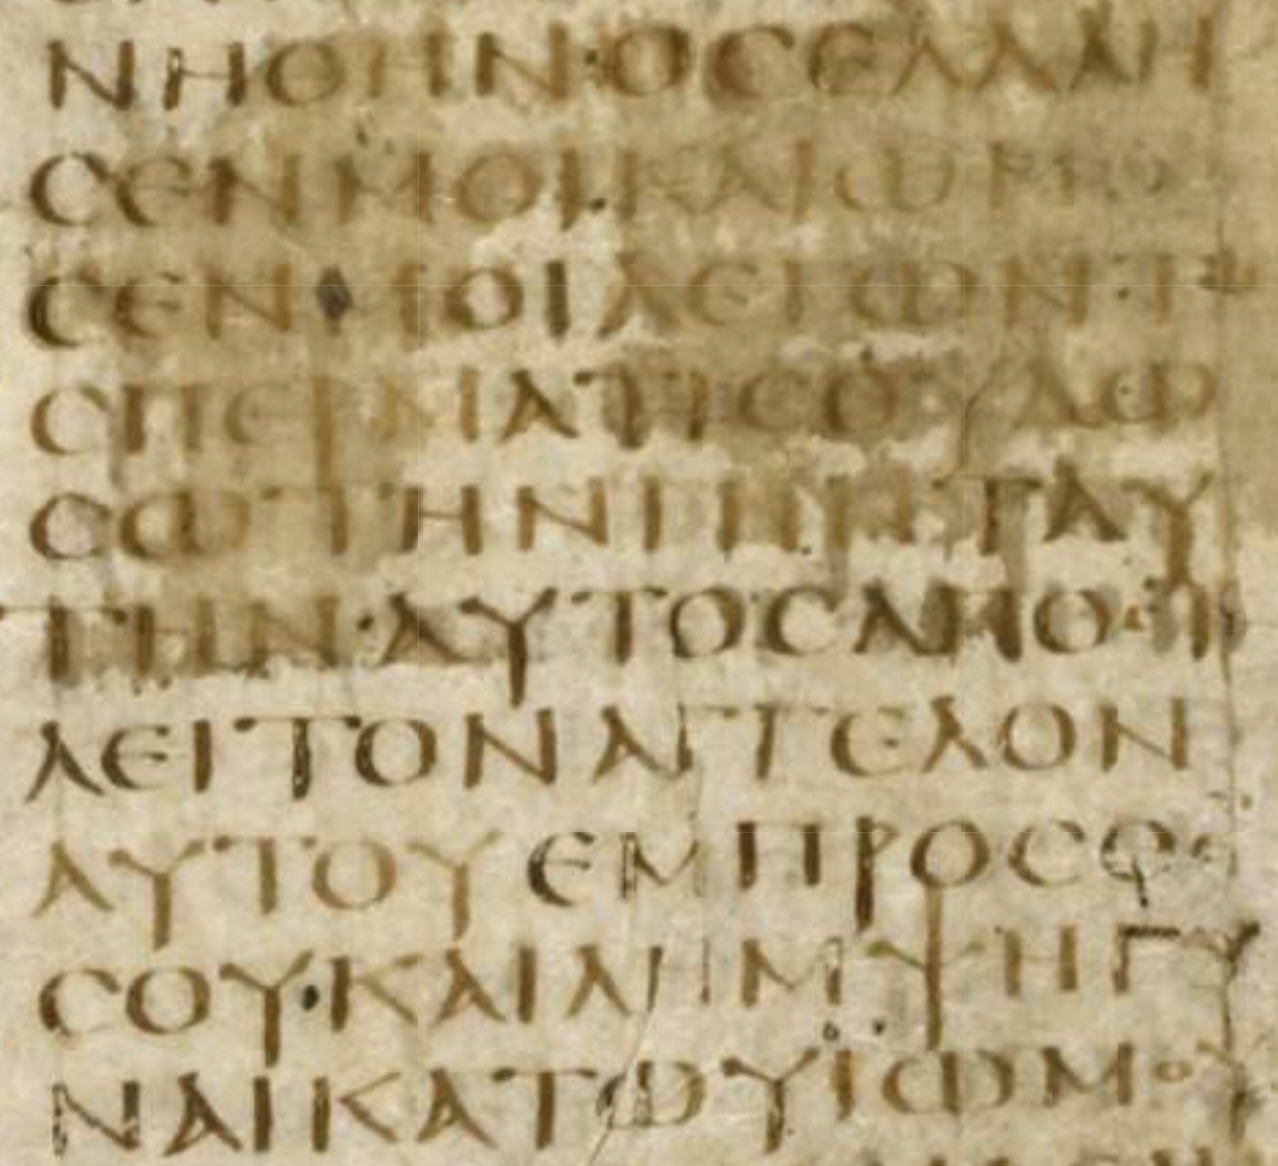 ΝΗΘΗΝΟСΕΛΑΛΗ
СΕΝΜΟΙΚΑΙΩΜΟ
СΕΝΜΟΙΛΕΓΩΝΤΩ
СΠΕΡΜΑΤΙСΟΥΔΩ
СΩΤΗΝΓΗΝΤΑΥ
ΤΗΝ·ΑΥΤΟСΑΠΟСΤΕ
ΛΕΙΤΟΝΑΓΓΕΛΟΝ
ΑΥΤΟΥΕΜΠΡΟСΘΕ
СΟΥ·ΚΑΙΛΗΜΨΗΓΥ
ΝΑΙΚΑΤΩΥΙΩΜΟΥ